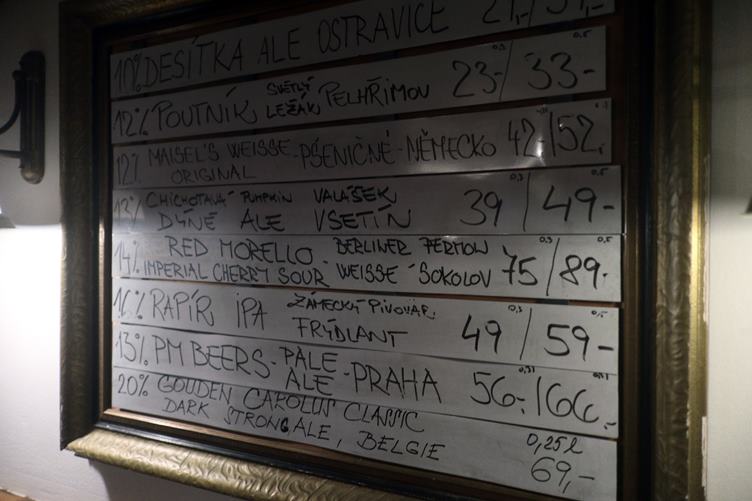 10% DESÍTKA ALE OSTRAVICE
12% POUTNÍK SVĚTLÝ LEŽÁK PELHŘIMOV 0,3 23,-/ 0,5 33,-
12% MAISEL'S WEISSE ORIGINAL - PŠENIČNÉ - NĚMECKO 42,-/52,-
13% CHICHOTAVÁ PUMPKIN VALÁŠEK 0,3 39 / 0,5 49,-
DÝNĚ ALE VSETÍN
14% RED MORELLO - BERLINER PERMON 0,3 75/ 0,5 89,-
IMPERIAL CHERRY SOUR WEISSE SOKOLOV
16% RAPÍR IPA ZÁMECKÝ PIVOVAR 0,3 49 / 0,5 59,-
FRÝDLANT
13% PM BEERS - PALE ALE - PRAHA 56,-/66,-
20% GOUDEN CAROLUS CLASSIC 0,25l
DARK STRONG ALE, BELGIE 69,-